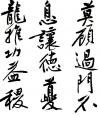 莫顧過門不
息讓德夔
龍推功益稷